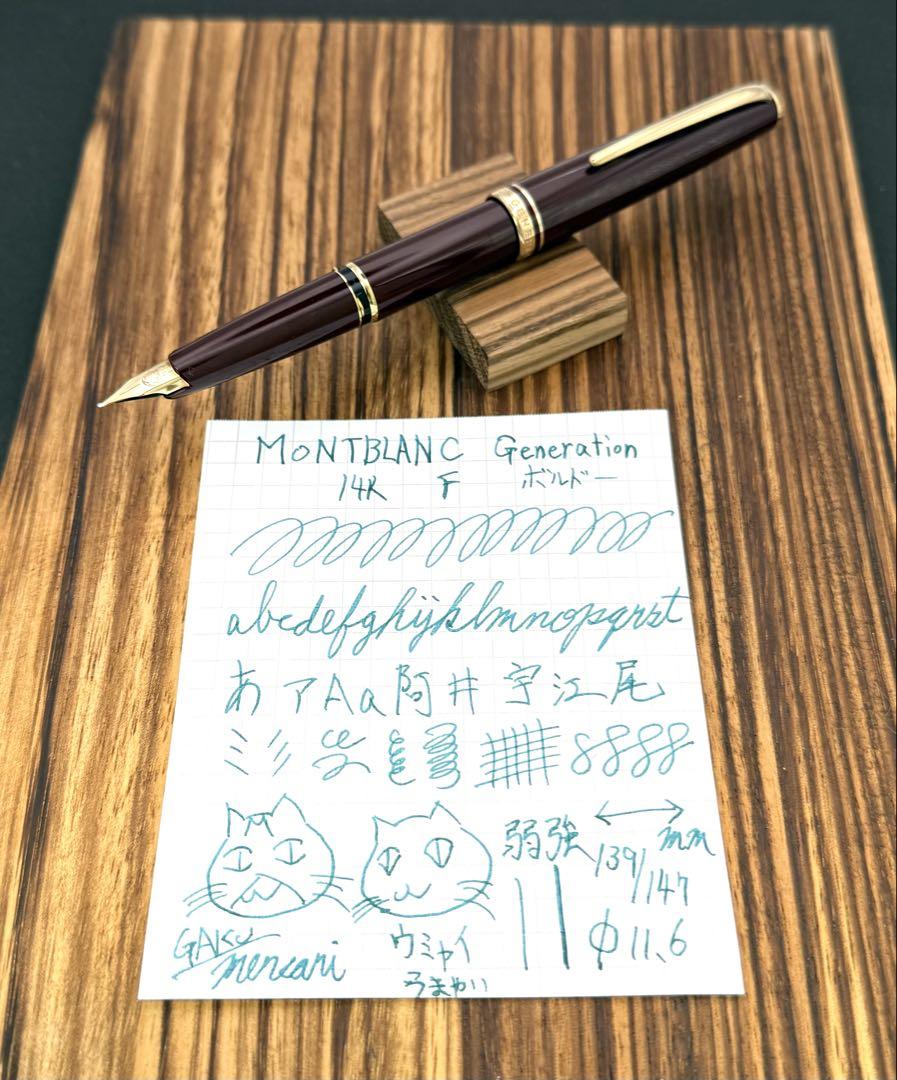 MONTBLANC Generation
14K F ボルドー
abcdefghijklmnopqrst
あ ア A a 阿 井 宇 江 尾
弱 強 mm
139/147
φ11.6
GAKU
mercari
ウミャイ
うまやい